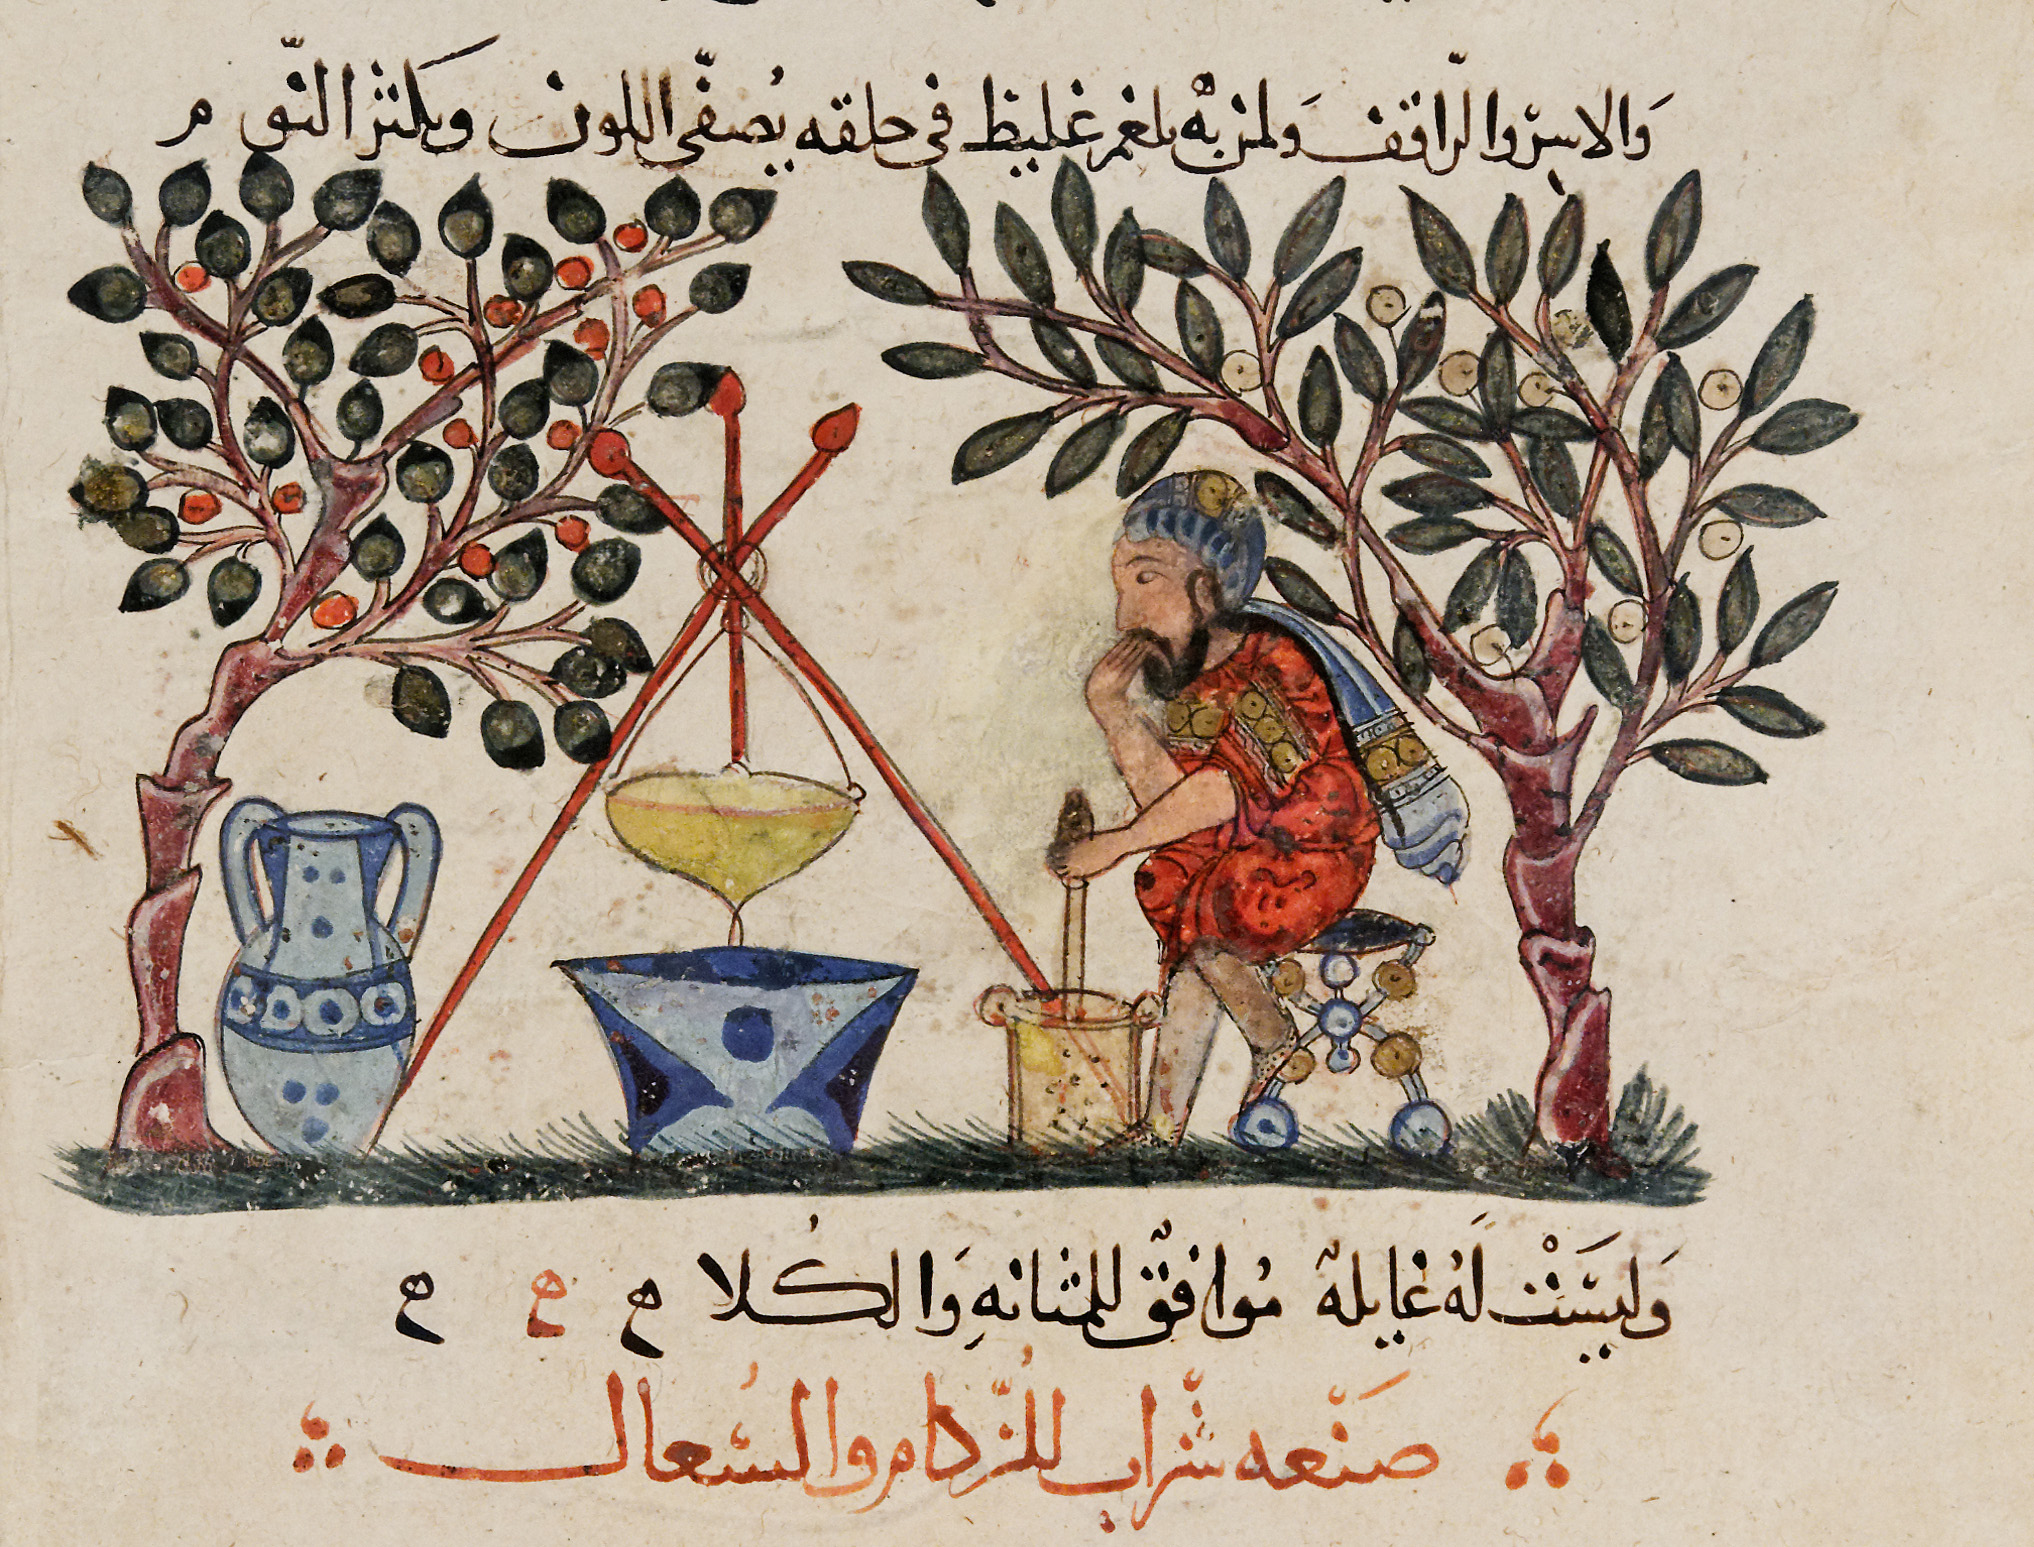 والاسر والراقف ولمن به بلغم غليظ في حلقه يُصفّي اللون ويكثر النوم
وَليسَتْ لَهُ غايلة مُوافق للمثانهِ وَالكُلا ه ه ه
صَنْعه شَراب للزُكام والسُعال